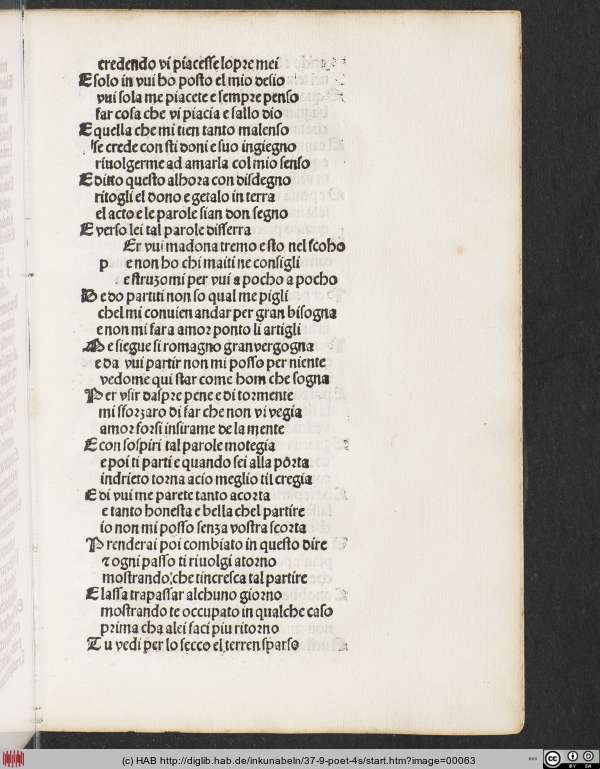 credendo vi piacesse lopre mei
E solo in vui ho posto el mio desio
vui sola me piacete e sempre penso
far cosa che vi piacia e sallo dio
E quella che mi tien tanto malenso
se crede con sti doni e suo ingiegno
rivolgerme ad amarla col mio senso
E ditto questo alhora con disdegno
ritogli el dono e getalo in terra
el acto e le parole sian don segno
E verso lei tal parole disserra
Er vui madona tremo e sto nel scoho
p e non ho chi maiti ne consigli
e struzomi per vui a pocho a pocho
De do partiti non so qual me pigli
chel mi convien andar per gran bisogna
e non mi fara amor ponto li artigli
Me siegue si romagno gran vergogna
e da vui partir non mi posso per niente
vedome qui star come hom che sogna
Per vsir daspre pene e di tormente
mi sforzaro di far che non vi vegia
amor forsi insirame de la mente
E con sospiri tal parole motegia
e poi ti parti e quando sei alla porta
indrieto torna acio meglio til cregia
E di vui me parete tanto acorta
e tanto honesta e bella chel partire
io non mi posso senza vostra scorta
Prenderai poi combiato in questo dire
⁊ ogni passo ti rivolgi atorno
mostrando che tincresca tal partire
E lassa trapassar alchuno giorno
mostrando te occupato in qualche caso
prima cha alei faci piu ritorno
Tu vedi per lo secco el terren sparso
(c) HAB http://diglib.hab.de/inkunabeln/37-9-poet-4s/start.htm?image=00063